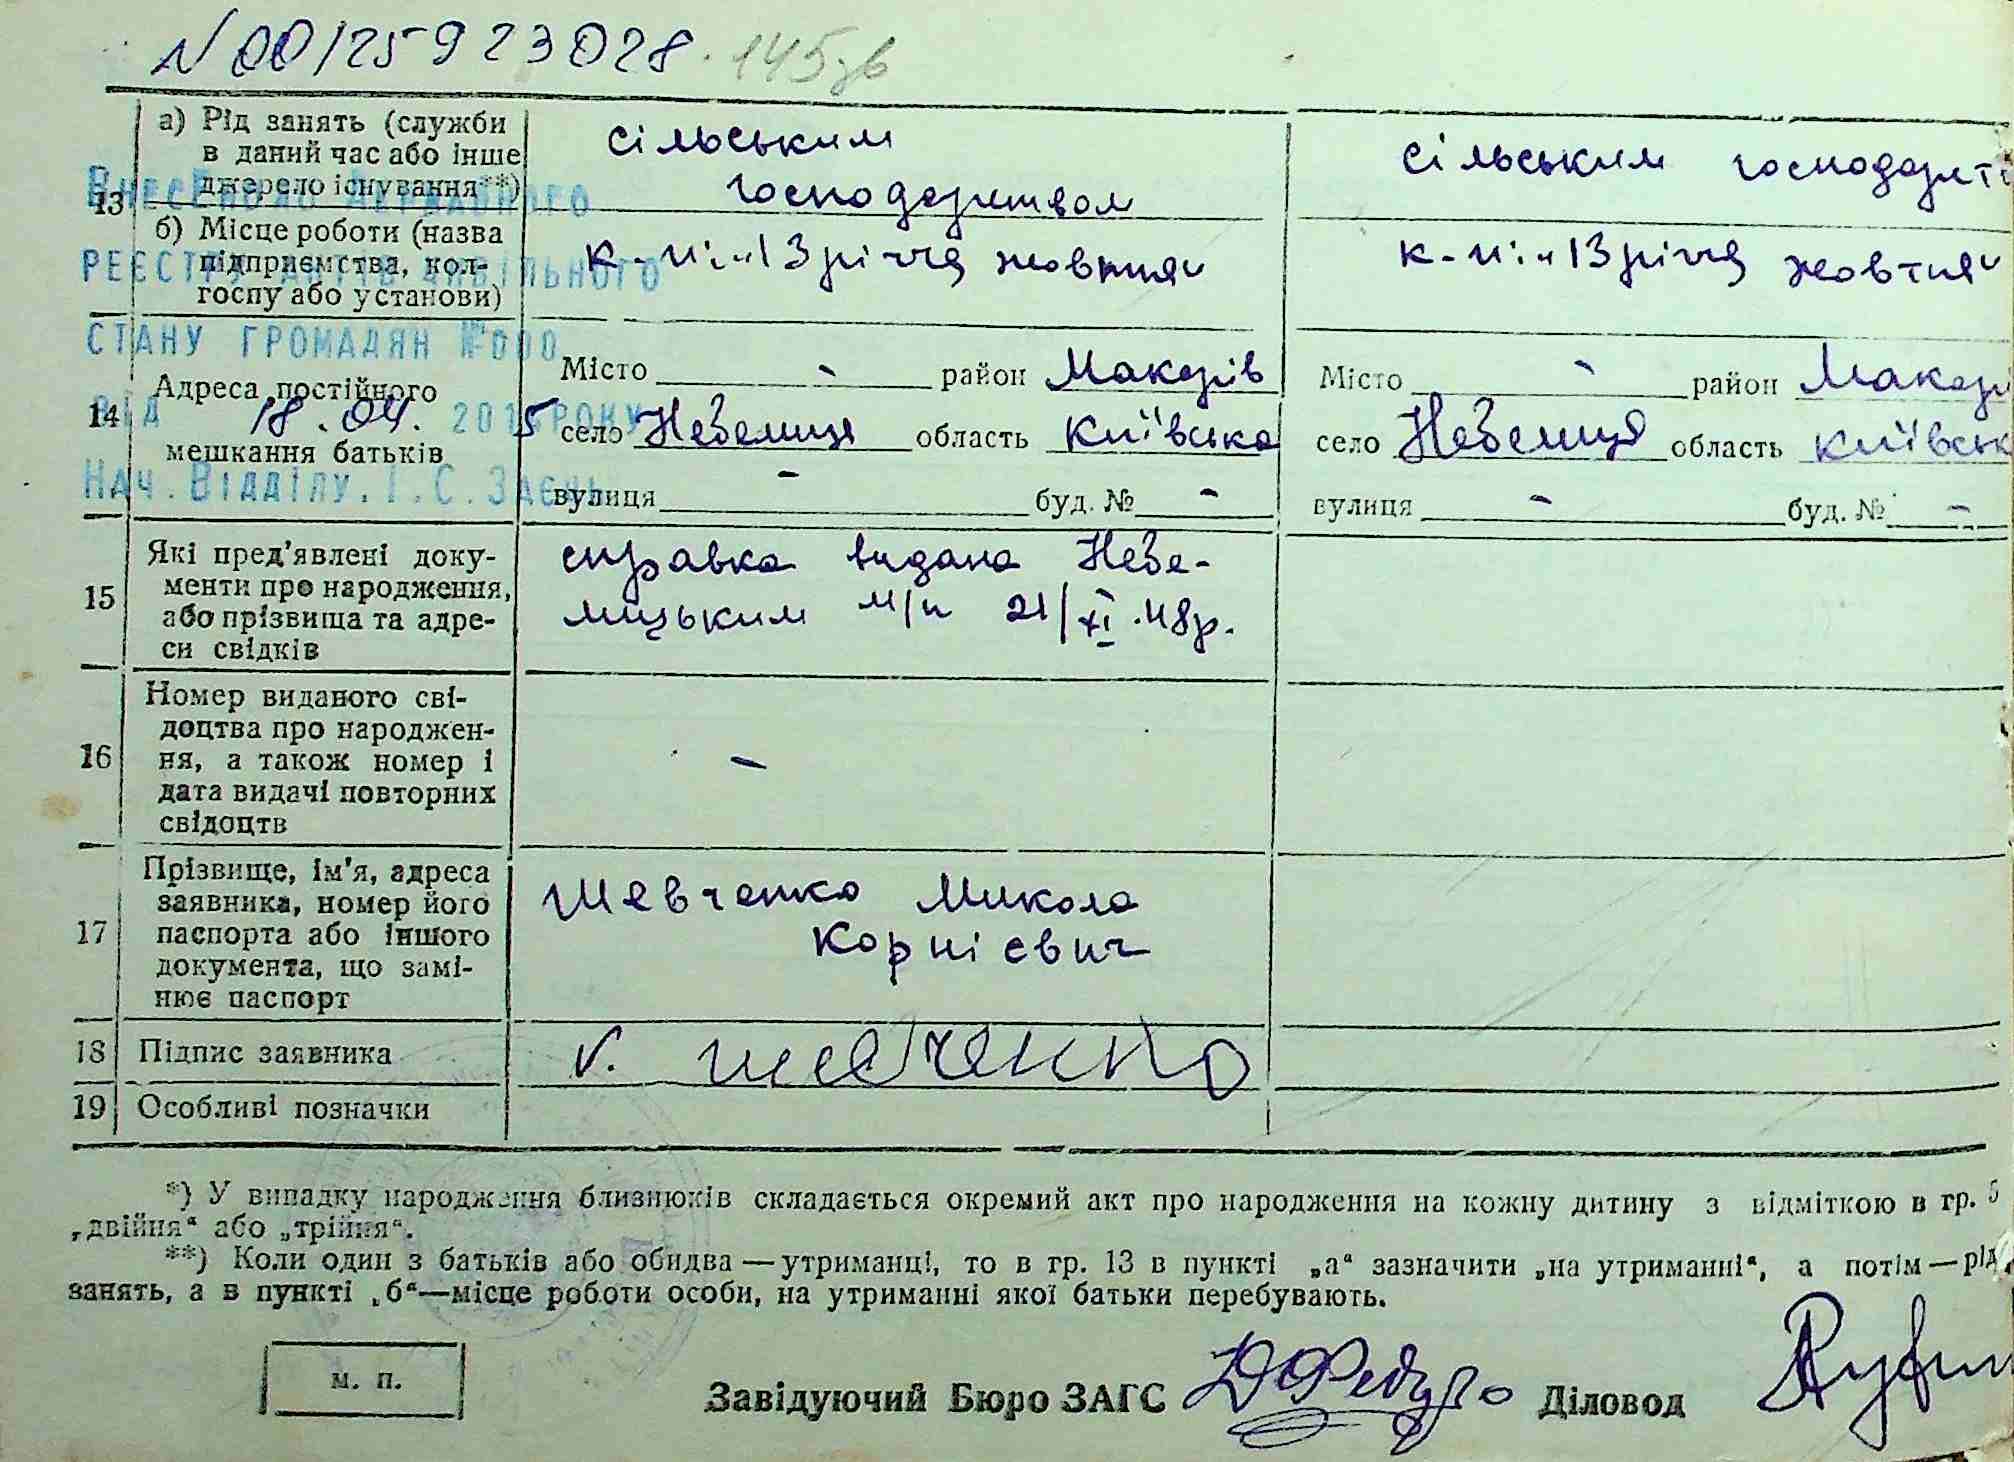 N 00125923028. 145зв
а) Рід занять (служби сільським сільським господарст
в даний час або інше господарством
13 джерело існування**)
б) Місце роботи (назва к-п: „13 річчя жовтня“ к-п: „13 річчя жовтня“
підприємства, кол-
госпу або установи)
Внесено до Державного
реєстру актів цивільного
стану громадян №000
від 18.04. 2015 року
Нач. Відділу. І.С. Заєць
14 Адреса постійного
мешкання батьків
Місто - район Макарів
село Небелиця область Київська
вулиця - буд. № -
Місто - район Макарі
село Небелиця область Київськ
вулиця - буд. № -
15 Які пред’явлені доку-
менти про народження,
або прізвища та адре-
си свідків
справка видана Небе-
лицьким м/п 21/XI.48р.
16 Номер виданого сві-
доцтва про народжен-
ня, а також номер і
дата видачі повторних
свідоцтв
-
17 Прізвище, ім'я, адреса
заявника, номер його
паспорта або іншого
документа, що замі-
нює паспорт
Шевченко Микола
Корнієвич
18 Підпис заявника v. Шевченко
19 Особливі позначки
*) У випадку народження близнюків складається окремий акт про народження на кожну дитину з відміткою в гр. 5
„двійня“ або „трійня“.
**) Коли один з батьків або обидва — утриманці, то в гр. 13 в пункті „а“ зазначити „на утриманні“, а потім — рід
занять, а в пункті „б“—місце роботи особи, на утриманні якої батьки перебувають.
м. п.
Завідуючий Бюро ЗАГС Діловод